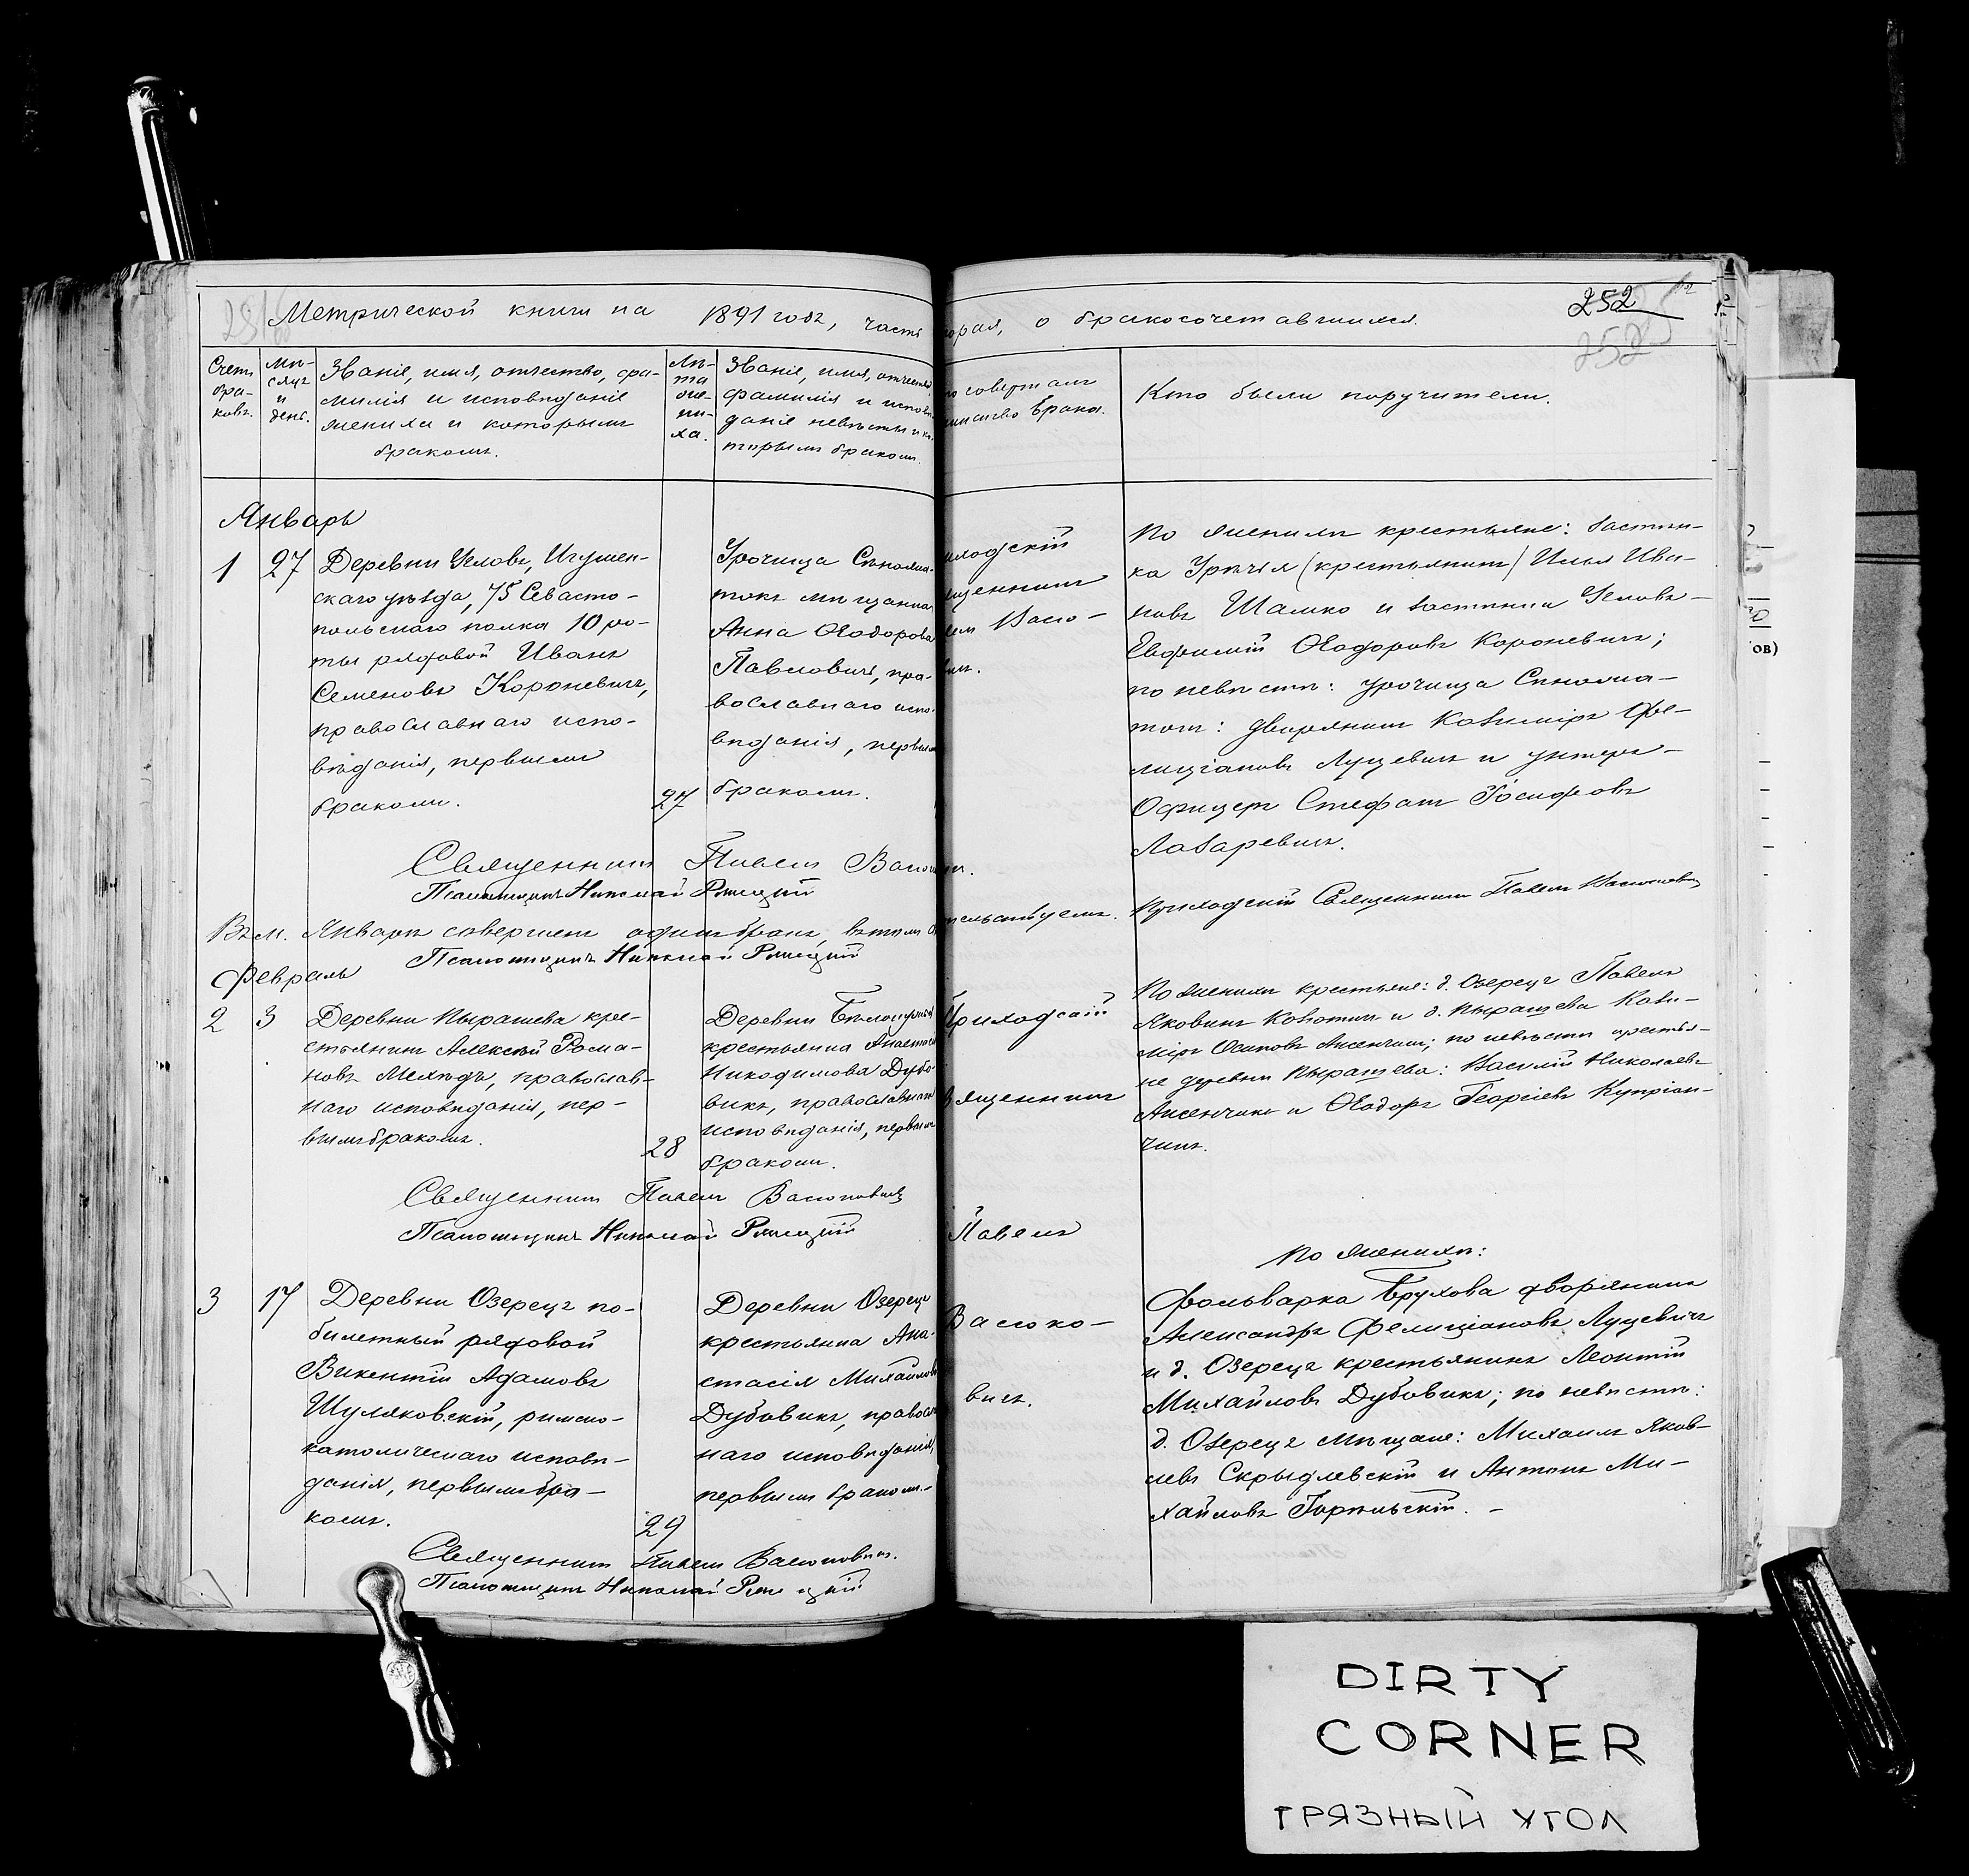 Метрической книги на 1891 годъ, часть
орая, о бракосочетавшихся.
252
252
Счетъ
бра-
ковъ.
Мѣ-
сяцъ
и
день.
Званіе, имя, отчество, фа-
милія и исповѣданіе
жениха и которымъ
бракомъ.
Лѣ-
та
же-
ни-
ха.
Званіе, имя, отчество,
фамилія и исповѣ-
даніе невѣсты и ко-
торымъ бракомъ.
о совершалъ
инство брака.
Кто были поручители.
Январь
1
27
Деревни Условъ, Игумен-
скаго уѣзда, 75 Севасто-
польскаго полка 10 ро-
ты рядовой Иванъ
Семеновъ Короневичъ,
православнаго испо-
вѣданія, первымъ
бракомъ.
27
Урочища Сѣножа-
токъ мѣщанка
Анна Ѳеодорова
Павловичъ, пра-
вославнаго испо-
вѣданія, первымъ
бракомъ.
иходскій
ященникъ
елъ Васю-
вичъ.
По женихѣ крестьяне: застѣн-
ка Урѣчья (крестьянинъ) Илья Ива-
новъ Шашко и застѣнка Условъ-
Евфимій Ѳеодоровъ Короневичъ;
по невѣстѣ: урочища Сѣножа-
токъ: дворянинъ Казиміръ Фе-
лиціановъ Луцевичъ и унтеръ-
Офицеръ Стефанъ Іосифовъ
Лазаревичъ.
Священникъ Павелъ Васюковичъ.
Псаломщикъ Николай
Въ м. Январѣ совершенъ одинъ бракъ, въ томъ
тельствуемъ. Приходскій Священникъ Павелъ Васюковичъ
Псаломщикъ Николай
Февраль
2
3
Деревни Пырашева кре-
стьянинъ Алексѣй Рома-
новъ православ-
наго исповѣданія, пер-
вымъ бракомъ.
28
Деревни
крестьянка Анастасія
Никодимова Дубо-
викъ, православнаго
исповѣданія, первымъ
бракомъ.
Приходскій
вященникъ
Павелъ
Васюко-
вичъ.
По женихѣ крестьяне: д. Озерецъ Павелъ
Яковинъ и д. Пырашева Кази-
міръ Осиповъ Аксенчикъ; по невѣстѣ крестья-
не деревни Пырашева: Василій Николаевъ
Аксенчикъ и Ѳеодоръ Георгіевъ Купріан-
чикъ.
Священникъ Павелъ Васюковичъ
Псаломщикъ Николай
3
17
Деревни Озерецъ по-
билетный рядовой
Викентій Адамовъ
Шуляковскій, римско-
католическаго исповѣ-
данія, первымъ бра-
комъ.
29
Деревни Озерецъ
крестьянка Ана-
стасія Михайлова
Дубовикъ, православ-
наго исповѣданія,
первымъ бракомъ.-
По женихѣ:
Фольварка Брухова дворянинъ
Александръ Фелиціановъ Луцевичъ
и д. Озерецъ крестьянинъ Леонтій
Михайловъ Дубовикъ; по невѣстѣ:
д. Озерецъ мѣщане: Михаилъ Яков-
левъ Скрыдлевскій и Антонъ Ми-
хайловъ Горѣльскій. -
Священникъ Павелъ Васюковичъ.
Псаломщикъ Николай
ОВ)
DIRTY
CORNER
ГРЯЗНЫЙ УГОЛ